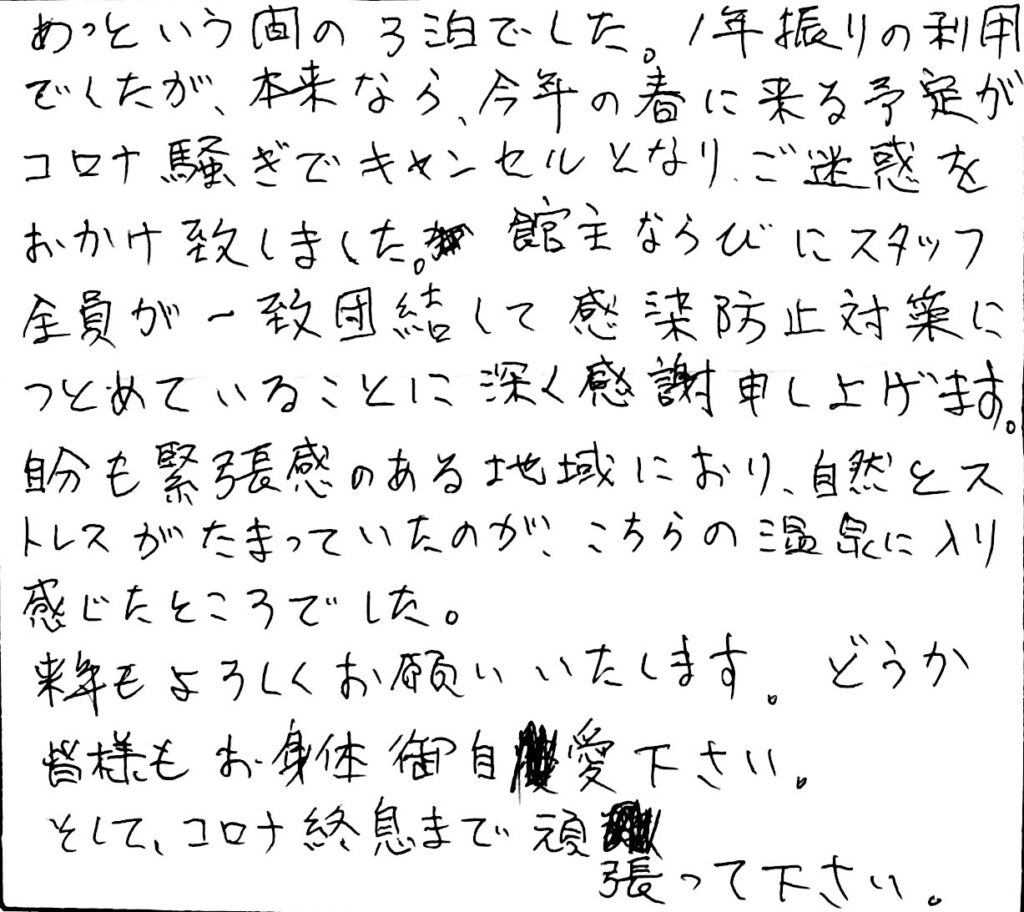 あっという間の3泊でした。1年振りの利用
でしたが、本来なら、今年の春に来る予定が
コロナ騒ぎでキャンセルとなり、ご迷惑を
おかけ致しました。館主ならびにスタッフ
全員が一致団結して感染防止対策に
つとめていることに深く感謝申し上げます。
自分も緊張感のある地域におり、自然とス
トレスがたまっていたのが、こちらの温泉に入り
感じたところでした。
来年もよろしくお願いいたします。どうか
皆様もお身体御自愛下さい。
そして、コロナ終息まで頑
張って下さい。